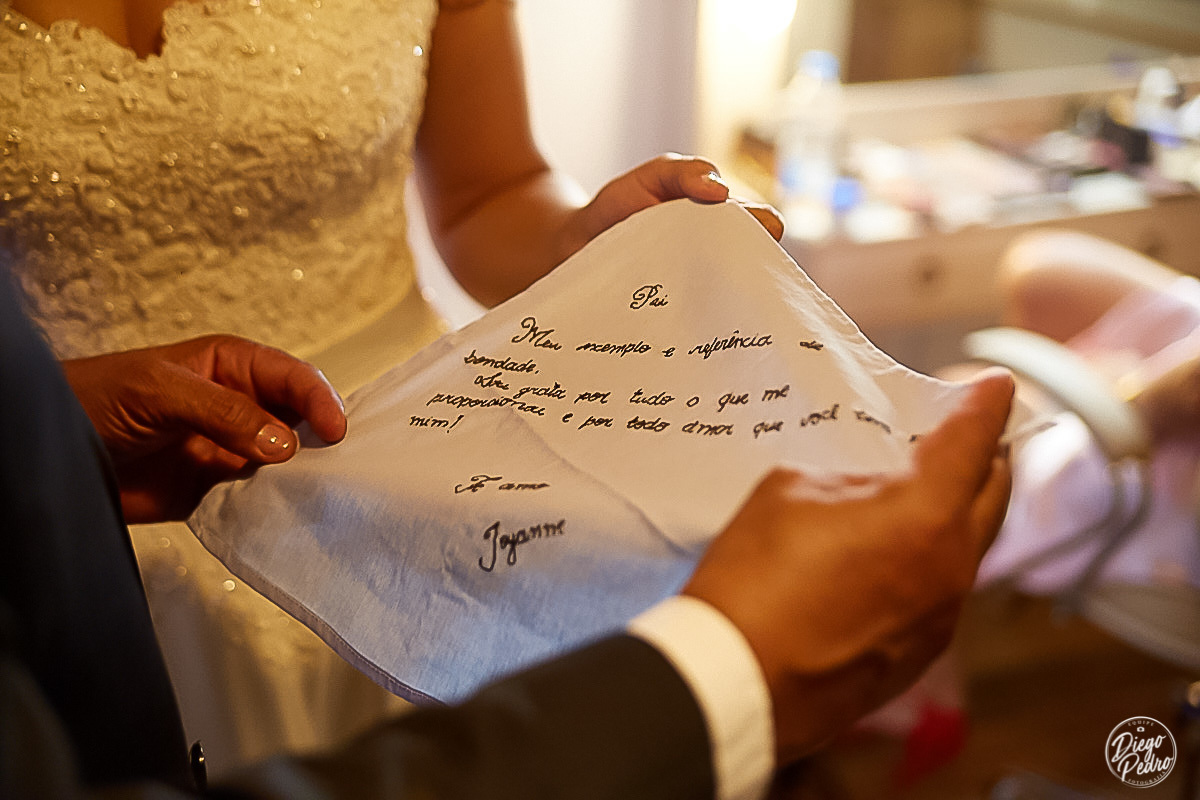 Pai
Meu exemplo e referência de
bondade.
Sou grata por tudo o que me
proporcionou e por todo amor que você tem
mim!
Te amo
Joyanne
EQUIPE
Diego
Pedro
FOTOGRAFIA